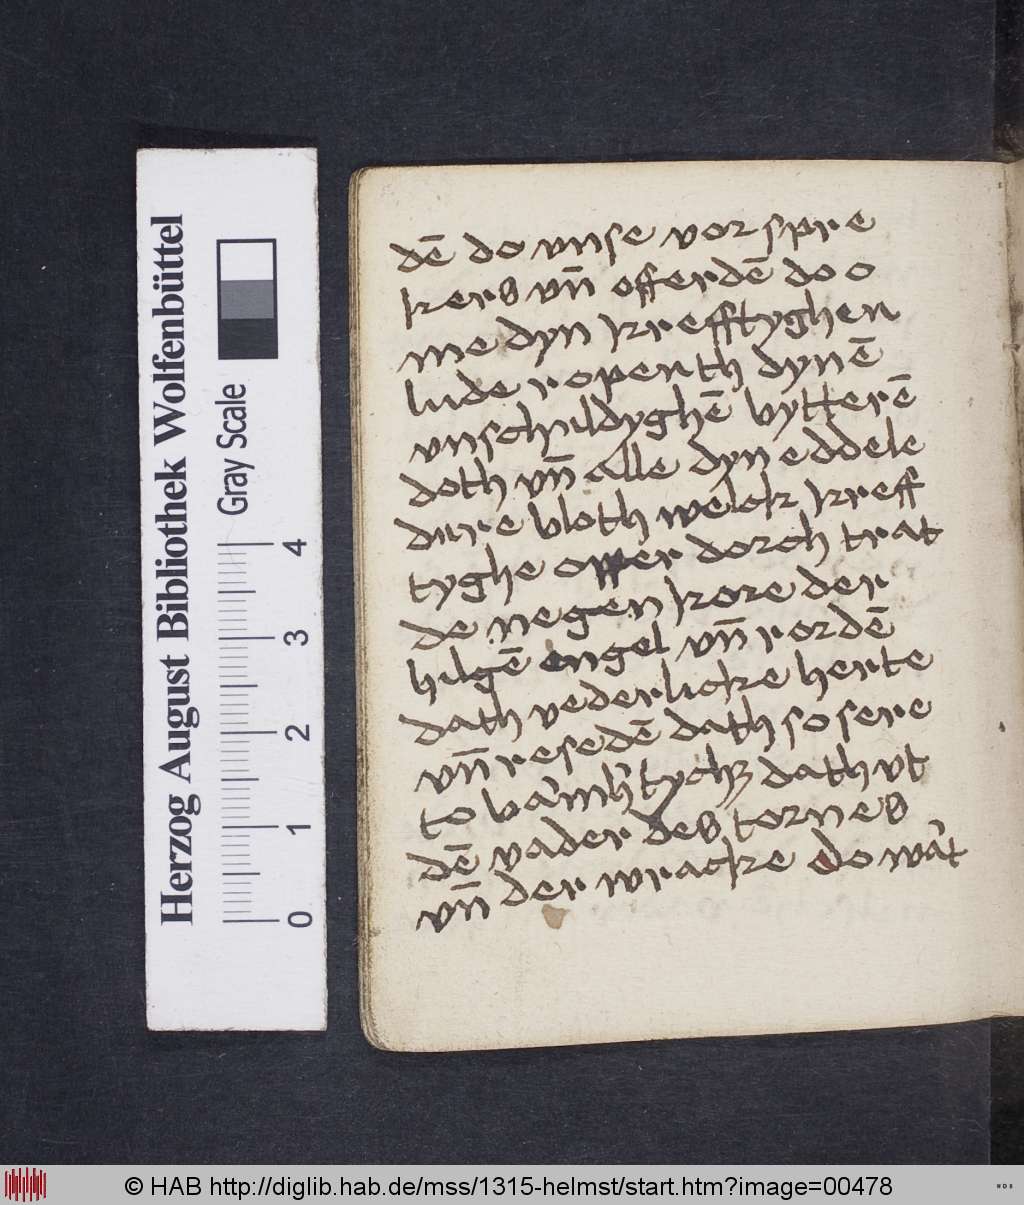 dē do vnse vorspre
kers vn̄ offerdē do o
me dyn krefftyghen
lude ropenth dynē
vnschuldyghē bytterē
doth vn̄ alle dyn eddele
dure bloth welck kreff
tyghe opper dorch trat
de negen kore der
hilgē engel vn̄ rordē
dath vederlicke herte
vn̄ resedē dath so sere
to bamh'tych3 dath vt
dē vader des tornes
vn̄ der wracke do wa't
Herzog August Bibliothek Wolfenbüttel
Gray Scale
0 1 2 3 4
© HAB http://diglib.hab.de/mss/1315-helmst/start.htm?image=00478